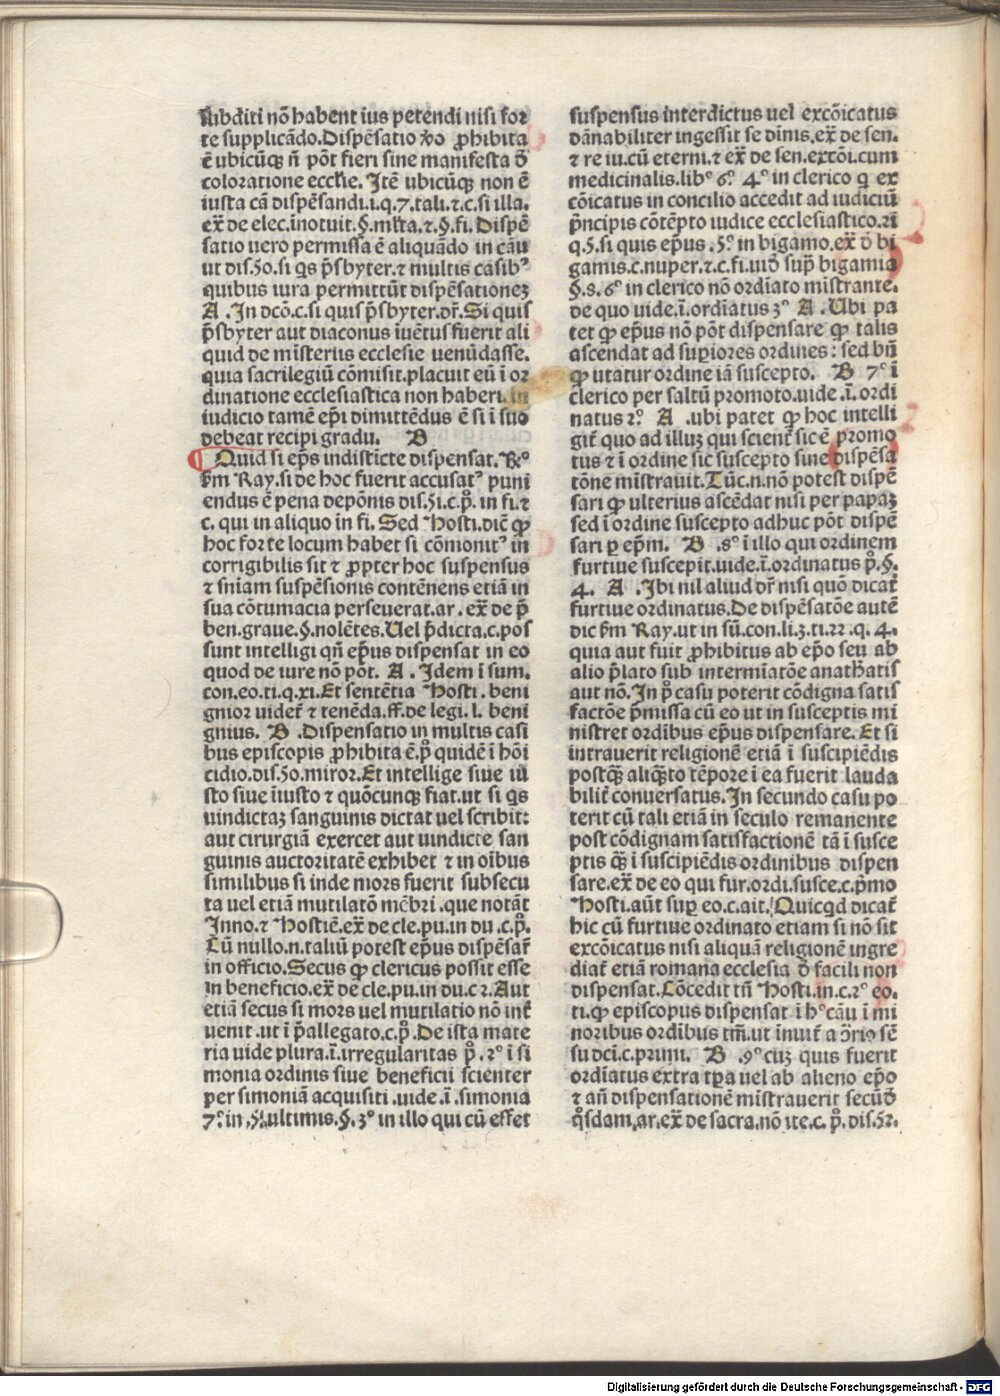 subditi nō habent ius petendi nisi for
te supplicādo. Dispēsatio ꝟo ꝓhibita
ē ubicūqꝫ ñ pōt fieri sine manifesta ð
coloratione eccłie. Itē ubicūqꝫ non ē
iusta cā dispēsandi. i. q. 7. tali. ⁊ c. si illa.
ex̄ de elec. īnotuit. §. mſta. ⁊ §. fi. Dispē
satio uero permissa ē aliquādo in cāu
ut dis. 50. si qs p̄sbyter. ⁊ multis casibꝰ
quibus iura permittūt dispēsationeꝫ
A . In dcō. c. si quis p̄sbyter. dr̄. Si quis
p̄sbyter aut diaconus iuētus fuerit ali
quid de misteriis ecclesie uenūdasse.
quia sacrilegiū cōmisit. placuit eū ī or
dinatione ecclesiastica non haberi. in
iudicio tamē ep̄i dimittēdus ē si ī suo
debeat recipi gradu. B
Quid si ep̄s indisticte dispensat. ꝶᵒ
ẜm Ray. si de hoc fuerit accusatꝰ puni
endus ē pena depōnis dis. 51. c. pᵒ. in fi. ⁊
c. qui in aliquo in fi. Sed Hosti. dic̄ ꝙ
hoc forte locum habet si cōmonitꝰ in
corrigibilis sit ⁊ ꝓpter hoc suspensus
⁊ sn̄iam suspēsionis contēnens etiā in
sua cōtumacia perseuerat. ar. ex̄ de p̄
ben. graue. §. nolētes. Uel p̄dicta. c. pos
sunt intelligi qn̄ ep̄us dispensat in eo
quod de iure nō pōt. A . Idem ī sum.
con. eo. ti. q. xi. Et sentētia Hosti. beni
gnior uidet᷑ ⁊ tenēda. ff. de legi. l. beni
gnius. B . Dispensatio in multis casi
bus episcopis ꝓhibita ē. pᵒ quidē ī hōi
cidio. dis. 50. miror. Et intellige siue iu
sto siue īiusto ⁊ quōcunqꝫ fiat. ut si qs
uindictaꝫ sanguinis dictat uel scribit:
aut cirurgiā exercet aut uindicte san
guinis auctoritatē exhibet ⁊ in oībus
similibus si inde mors fuerit subsecu
ta uel etiā mutilatō mēbri . que notāt
Inno. ⁊ Hostiē. ex̄ de cle. pu. in du . c. pᵒ.
Cū nullo. n. taliū potest ep̄us dispēsar̄
in officio. Secus ꝙ clericus possit esse
in beneficio. ex̄ de cle. pu. in du. c 2. Aut
etiā secus si mors uel mutilatio nō int᷑
uenit. ut ī p̄allegato. c. pᵒ. De ista mate
ria uide plura. ī. irregularitas pᵒ. 2ᵒ ī si
monia ordinis siue beneficii scienter
per simoniā acquisiti . uide. ī. simonia
7ᵒ. in. 5. ultimis. §. 3ᵒ in illo qui cū esset
suspensus interdictus uel excōicatus
dānabiliter ingessit se diuis. ex̄ de sen.
⁊ re iu. cū eterni. ⁊ ex̄ de sen. excōi. cum
medicinalis. libᵒ 6ᵒ. 4ᵒ in clerico q ex
cōicatus in concilio accedit ad iudiciū
p̄ncipis cōtēpto iudice ecclesiastico. 21
q. 5. si quis ep̄us . 5ᵒ in bigamo. ex̄ ð bi
gamis. c. nuper. ⁊ c. fi. uið sup̄ bigamia
§. 8. 6ᵒ in clerico nō ordīato mīstrante.
de quo uide. ī. ordīatus 3ᵒ A . Ubi pa
tet ꝙ ep̄us nō pōt dispensare ꝙ talis
ascendat ad superiores ordines : sed bn̄
ꝙ utatur ordine iā suscepto. B 7ᵒ ī
clerico per saltū promoto. uide . ī. ordi
natus 2ᵒ. A . ubi patet ꝙ hoc intelli
git᷑ quo ad illuꝫ qui scient᷑ sic ē promo
tus ⁊ ī ordine sic suscepto sine dispēsa
tōne mīstrauit. Tūc. n. nō potest dispē
sari ꝙ ulterius ascēdat nisi per papaꝫ
sed ī ordine suscepto adhuc pōt dispē
sari ꝑ ep̄m. B . 8ᵒ ī illo qui ordinem
furtiue suscepit. uide. ī. ordinatus pᵒ. §.
4. A . Ibi nil aliud dr̄ nisi quō dicat᷑
furtiue ordinatus. De dispēsatōe autē
dic ẜm Ray. ut in sū. con. li. 3. ti. 22 . q. 4.
quia aut fuit ꝓhibitus ab ep̄o seu ab
alio p̄lato sub intermīatōe anath̄atis
aut nō. In pᵒ casu poterit cōdigna satis
factōe p̄missa cū eo ut in susceptis mi
nistret ordībus ep̄us dispensare. Et si
intrauerit religionē etiā ī suscipiēdis
postqꝫ aliqꝫto tēpore ī ea fuerit lauda
bilit᷑ conuersatus. In secundo casu po
terit cū tali etiā in seculo remanente
post cōdignam satisfactionē tā ī susce
ptis qꝫ ī suscipiēdis ordinibus dispen
sare. ex̄ de eo qui fur. ordi. susce. c. p̄mo
Hosti. aūt sup̄ eo. c. ait. Quicqd dicat᷑
hic cū furtiue ordinato etiam si nō sit
excōicatus nisi aliquā religionē ingre
diat᷑ etiā romana ecclesia ð facili non
dispensat. Cōcedit tn̄ Hosti. in. c. 2ᵒ eo.
ti. ꝙ episcopus dispensat ī hᵒ cāu ī mi
noribus ordībus tm̄. ut īnuit᷑ a ꝯ̄rio sē
su dcī. c. primi. B . 9ᵒ cuꝫ quis fuerit
ordīatus extra tp̄a uel ab alieno ep̄o
⁊ an̄ dispensationē mīstrauerit secūð
qꝫdam. ar. ex̄ de sacra. nō ite. c. pᵒ. dis. 52.
Digitalisierung gefördert durch die Deutsche Forschungsgemeinschaft - DFG